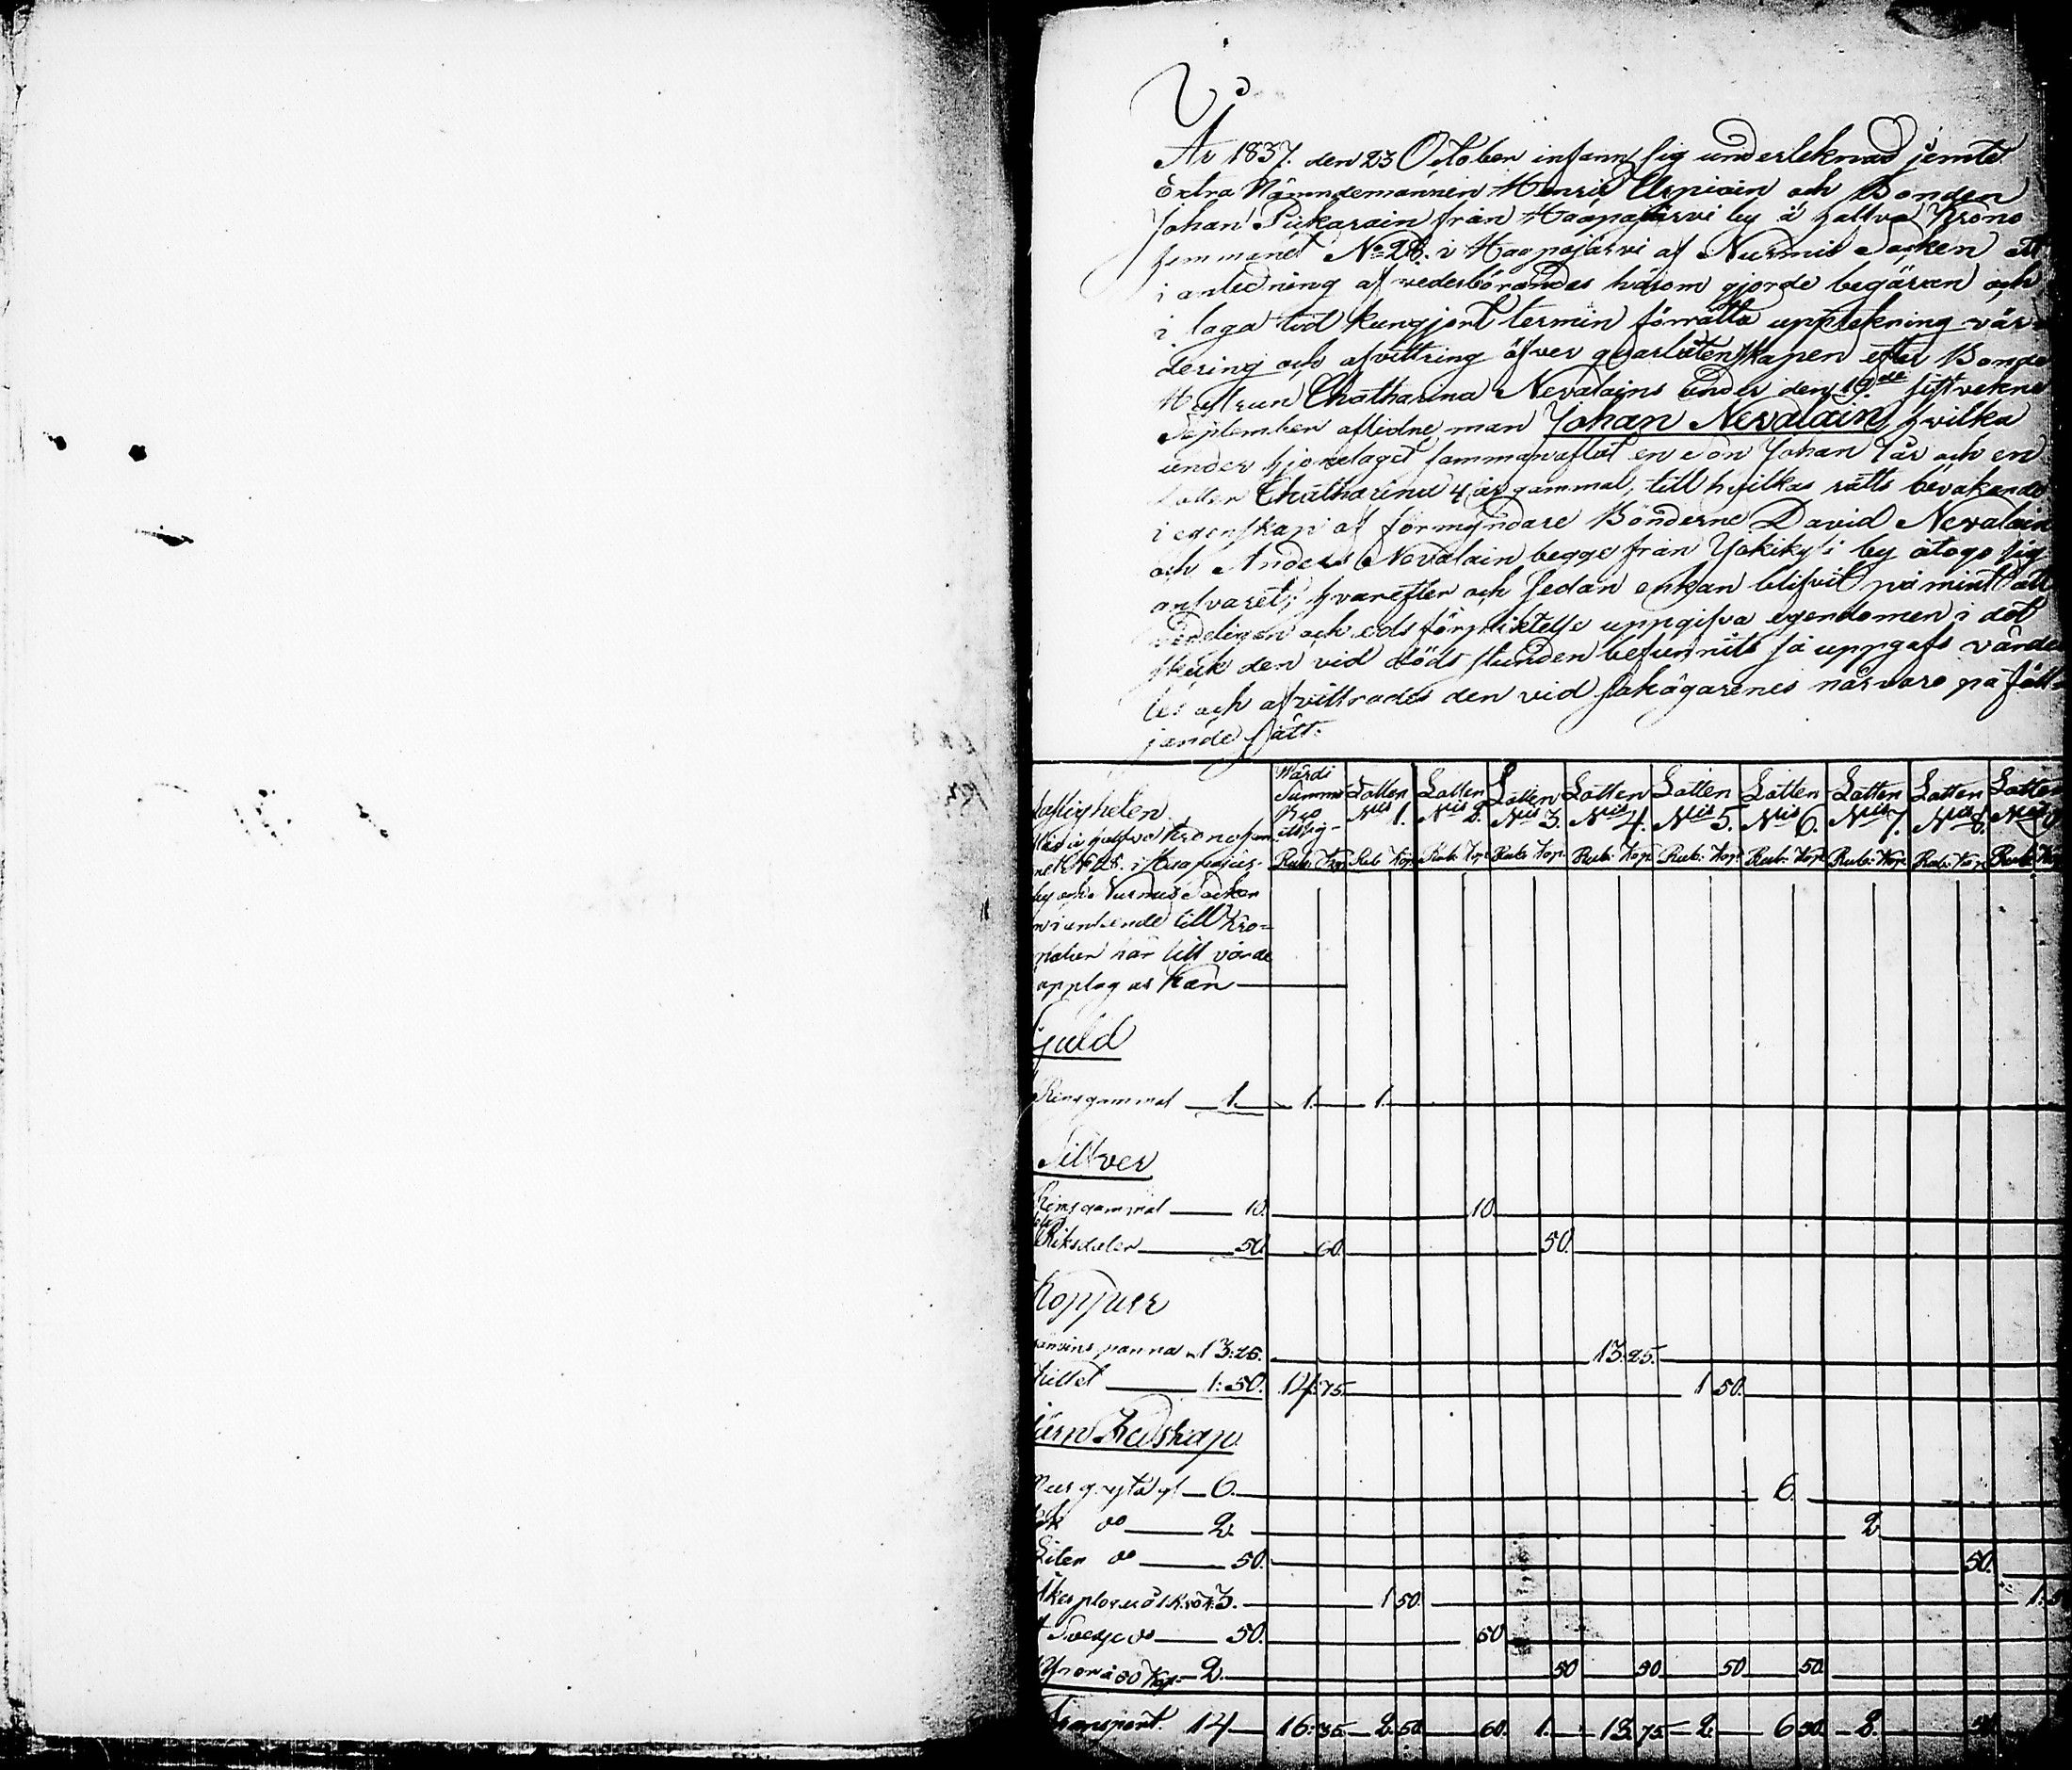 År 1837. den 23 October infann sig underteknad jemte
Extra Nämndemannen Henric Arpiain och Bonden
Johan Pickarain från Haapajärvi by å halfva Krono
hemmanet No 28. i Haapajärvi af Nurmis Socken att
i anledning af vederbörandes härom gjorde begäran och
i laga tid kungjort termin förrätta upptekning vär-
dering och afvittring öfver qvarlåtenskapen efter Bonde
Hustrun Chatharina Nevalains under den 19de sistvekne
September aflidne man Johan Nevalain hvilka
under hjonelaget sammanaflat en Son Johan 1 år och en
Dotter Chatharina 4 år gammal, till hvilkas rätts bevakande
i egenskap af förmyndare Bönderne David Nevalain
och Anders Nevalain begge från Jokikylä by åtogo sig
ansvaret; hvarefter och sedan enkan blifvit påmint att
redeligen och eds förpliktelse uppgifva egendomen i det
skick den vid döds stunden befunnits så uppgafs värde
les och afvittrades den vid sakägarenes närvaro på följ-
jande sätt:
Wärdi Summa Lotten Nis 1. Lotten Nis 2. Lotten Nis 3. Lotten Nis 4. Lotten Nis 5. Lotten Nis 6. Lotten Nis 7. Lotten Nis 8. Lotten Nis 9.
Rub. Kop. Rub. Kop. Rub. Kop. Rub. Kop. Rub. Kop. Rub. Kop. Rub. Kop. Rub. Kop. Rub. Kop. Rub. Kop.
astigheten
halfva Kronohem
No 28. i Haapajär-
by och Nurmis Socken
i anseende till Kro-
naturen här till värde
upptagas kan
Guld
Ring gammal 1. 1. 1.
Silfver
Ring gammal 10. 10.
Riksdaler 50. 60. 50.
Koppar
panna 13:25. 13:25.
Kittel 1:50. 14:75. 1 50.
Jern Redskap
gryta gl 6. 6.
do 2. 2
Liten do 50. 50.
Åker plog 3. 1 50. 1:5
do 50. 50
à 50 Kop 2. 50 50 50 50
Transport. 14 16:35 2.50 60. 1. 13:75 2 6 50. 2. 50